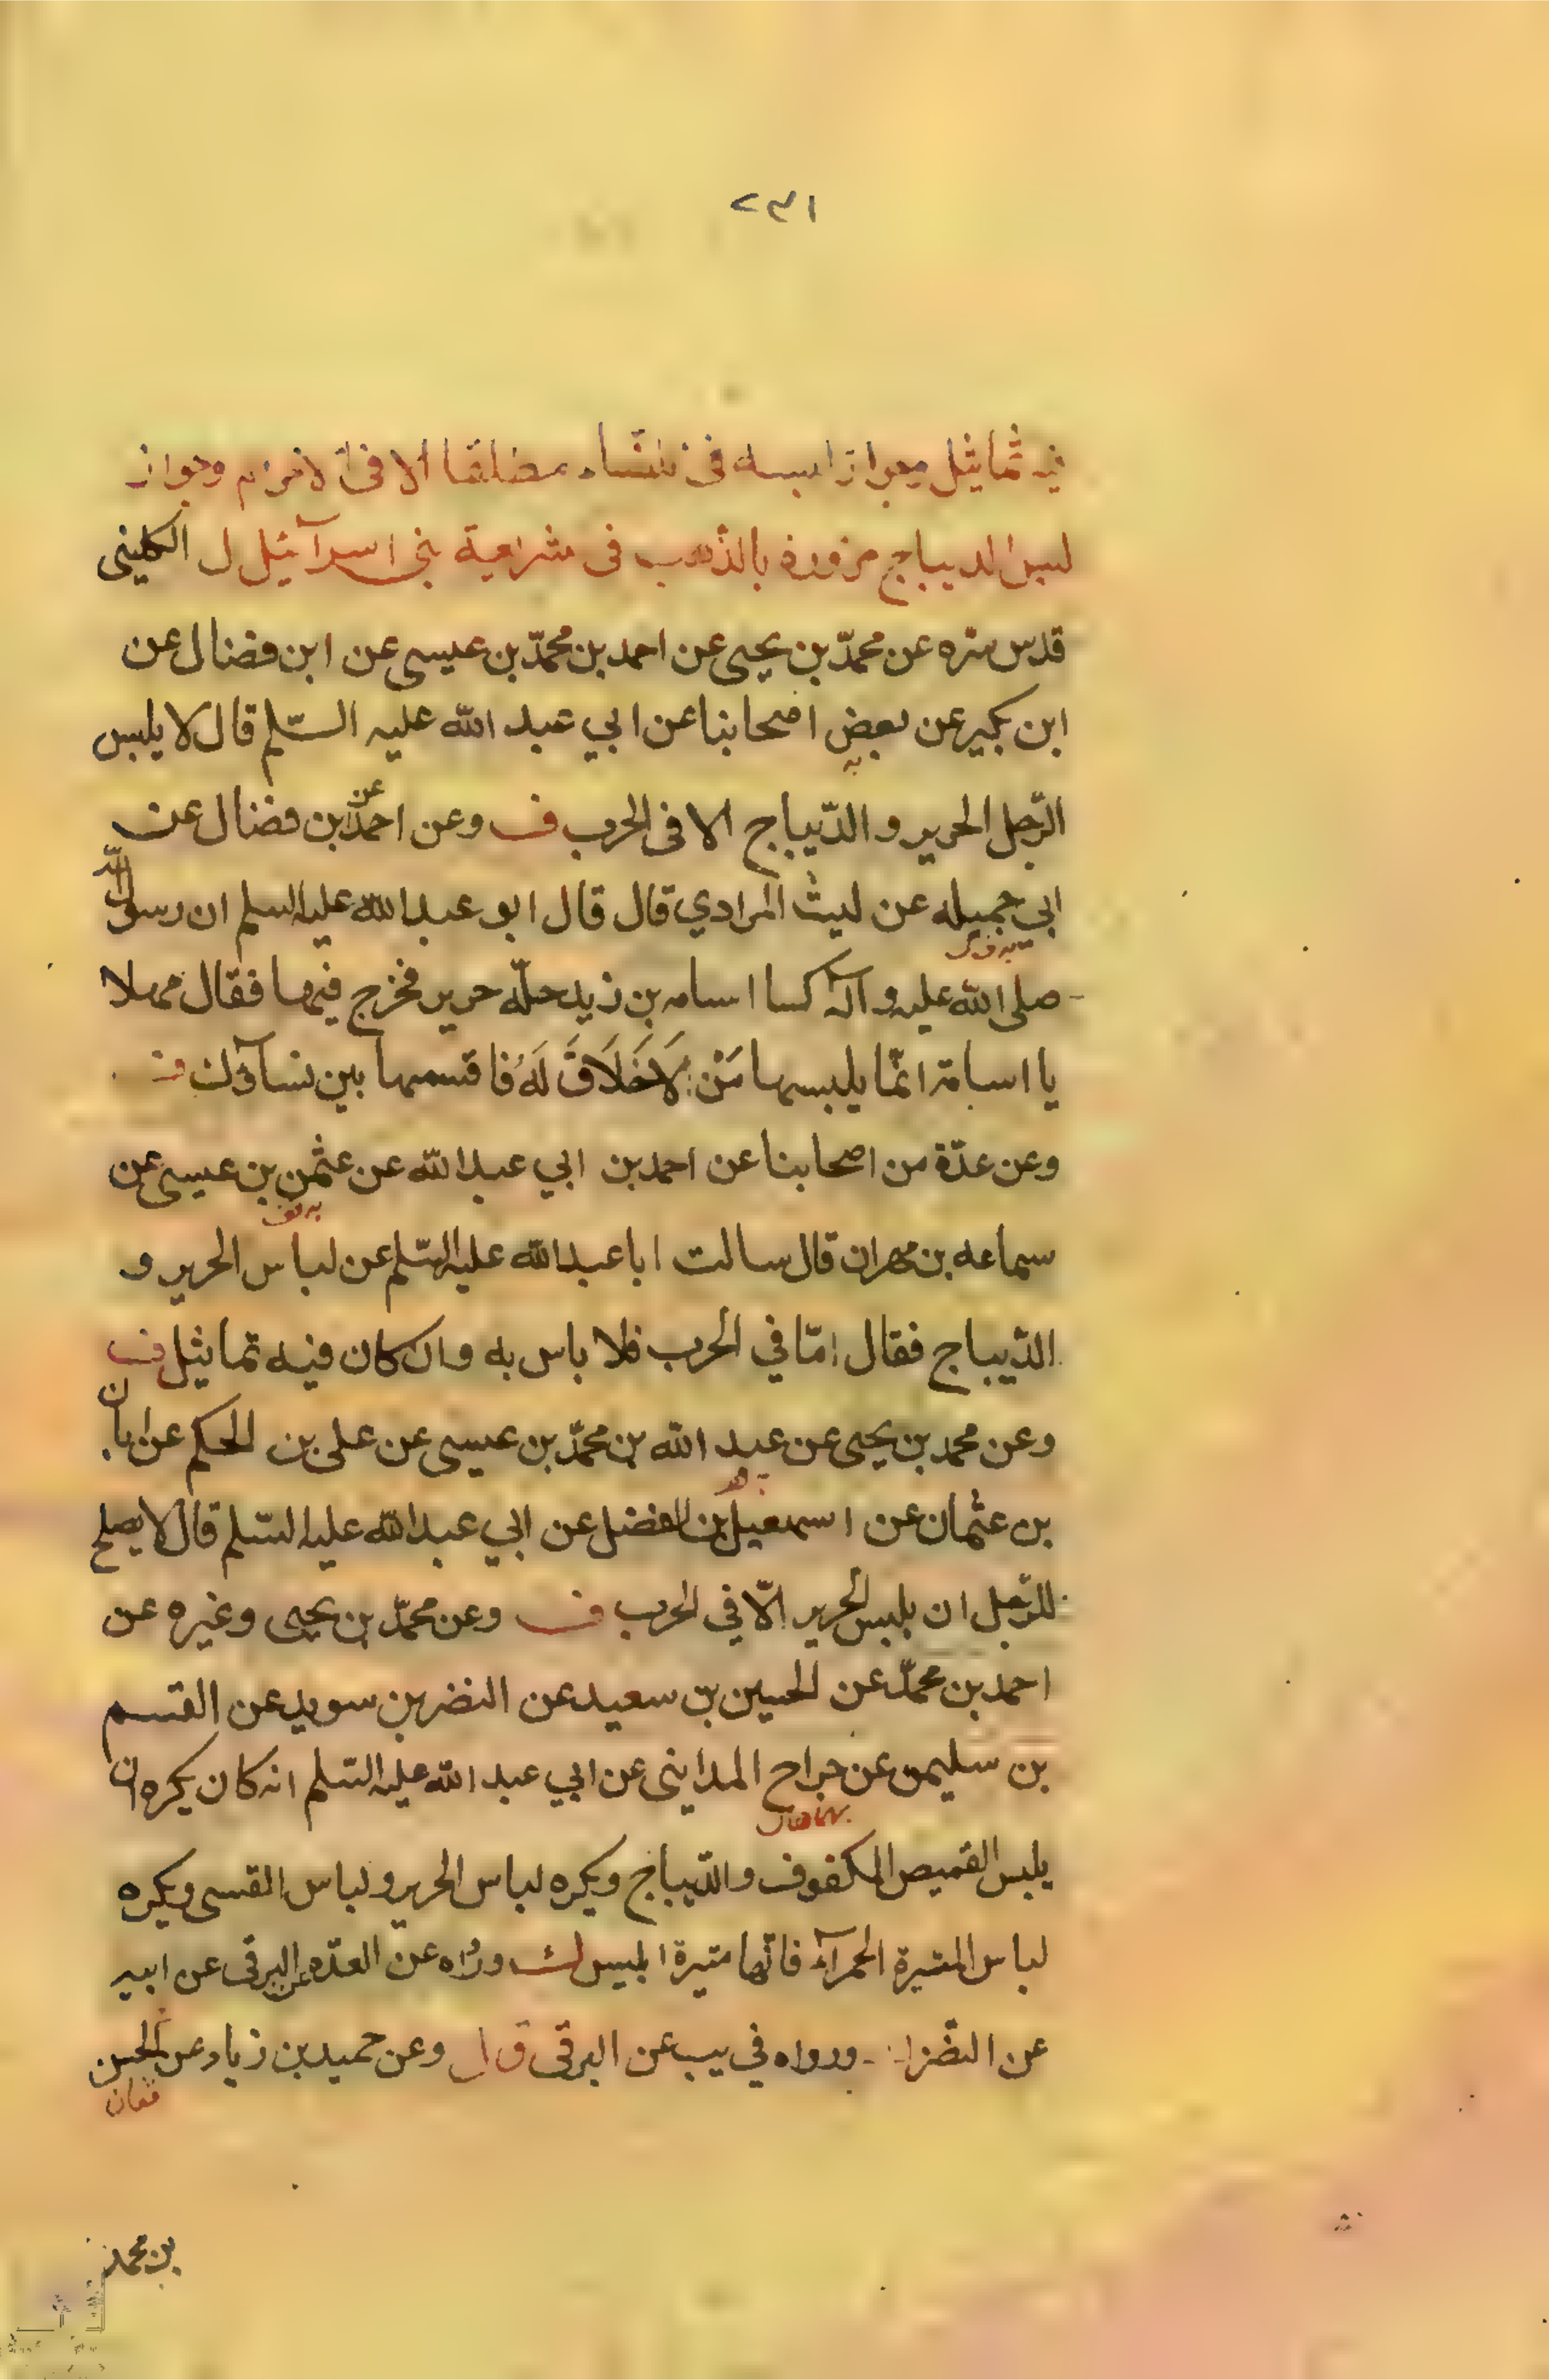 فيه تماثيل وجواز لبسه في النساء مطلقا الا في الاحرام وجواز
لبس الديباج مزورة بالذهب في شريعة بني اسرآئيل ل الكليني
قدس سره عن محمّد بن يحيى عن احمد بن محمّد بن عيسى عن ابن فضال عن
ابن بكير عن بعض اصحابنا عن ابي عبد الله عليه السّلم قال لا يلبس
الرّجل الحرير و الدّيباج الا في الحرب ف وعن احمد عن ابن فضال عن
ابي جميله عن ليث المرادي قال قال ابو عبد الله عليه السلم ان رسول الله
صلى الله عليه و آله كسا اسامه بن زيد حلّه حرير فخرج فيها فقال مهلا
يا اسامة انّما يلبسها مَنْ لَاخَلَاقَ لَهُ فاقسمها بين نسآئك ف
وعن عدّة من اصحابنا عن احمد بن ابي عبد الله عن عثمن بن عيسى عن
سماعه بن مهران قال سالت ابا عبد الله عليه السّلم عن لباس الحرير و
الدّيباج فقال امّا في الحرب فلا باس به وان كان فيه تماثيل ف
وعن محمد بن يحيى عن عبد الله بن محمّد بن عيسى عن على بن الحكم عن ابان
بن عثمان عن اسمعيل بن الفضل عن ابي عبد الله عليه السّلم قال لا يصلح
للرّجل ان يلبس الحرير الّا في الحرب ف وعن محمّد بن يحيى وغيره عن
احمد بن محمّد عن الحسين بن سعيد عن النضر بن سويد عن القسم
بن سليمن عن جراح المدايني عن ابي عبد الله عليه السّلم انه كان يكره ان
يلبس القميص المكفوف والدّيباج ويكره لباس الحرير ولباس القسى ويكره
لباس المثيرة الحمرآء فانّها مثيرة ابليس ك ورواه عن العدّه عن البرقى عن ابيه
عن النّضر ورواه في يب عن البرقى ق ل وعن حميد بن زياد عن الحسن
بن محمد